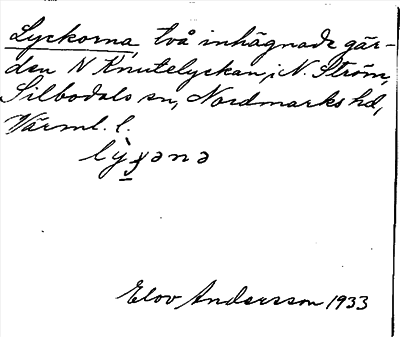 Lyckorna, två inhägnade gär-
den N Knutelyckan, i N. Ström,
Silbodals sn, Nordmarks hd,
Värml. l.
Elov Andersson 1933